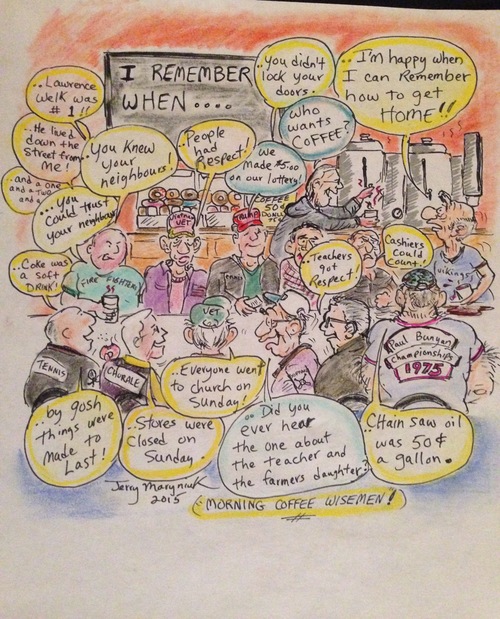 I REMEMBER
WHEN ....
..Lawrence
Welk was
# 1!!
..He lived
down the
street from
Me!
..and a one
and a two
and a
..You
could trust
your neighbour
You knew
your
neighbours!
People
had
Respect!
You didn't
lock your
doors.
..I'm happy when
I can Remember
how to get
HOME!!
Who
wants
COFFEE?
We
Made $5.00
on our lottery!
COFFEE
50¢
DONUTS
75¢
..Coke was
a soft
DRINK!
FIRE FIGHTER
Vietnam
VET
TRUMP
..Teachers
got
Respect!
Cashiers
Could
Count!
Vikings
VET
TENNIS
CHORALE
Paul Bunyan
Championships
1975
..by gosh
things were
Made to
Last!
..Stores were
Closed on
Sunday.
..Everyone went
to church on
Sunday!
.. Did you
ever hear
the one about
the teacher and
the farmers daughter?
CHain saw oil
was 50¢
a gallon.
Jerry Maryniuk
2015
MORNING COFFEE WISEMEN!